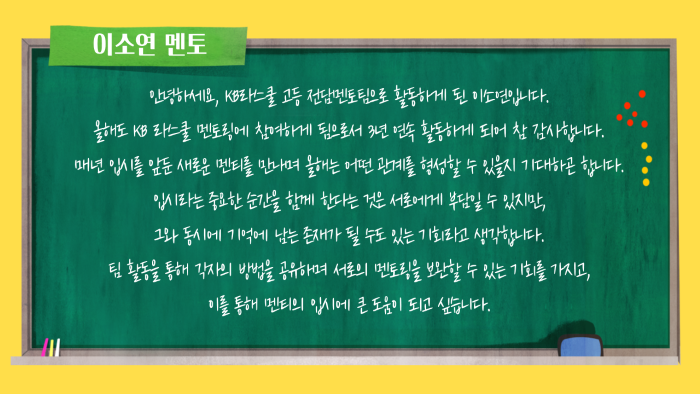 이소연 멘토
안녕하세요, KB라스쿨 고등 전담멘토팀으로 활동하게 된 이소연입니다.
올해도 KB 라스쿨 멘토링에 참여하게 됨으로서 3년 연속 활동하게 되어 참 감사합니다.
매년 입시를 앞둔 새로운 멘티를 만나며 올해는 어떤 관계를 형성할 수 있을지 기대하곤 합니다.
입시라는 중요한 순간을 함께 한다는 것은 서로에게 부담일 수 있지만,
그와 동시에 기억에 남는 존재가 될 수도 있는 기회라고 생각합니다.
팀 활동을 통해 각자의 방법을 공유하며 서로의 멘토링을 보완할 수 있는 기회를 가지고,
이를 통해 멘티의 입시에 큰 도움이 되고 싶습니다.